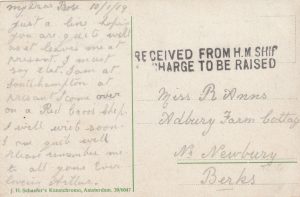 my Dear Rose 10/1/19
just a line hoping
you are quite well
as it leaves me at
present. I must
say that I am at
Southampton at
present I come over
on a Red Cross ship.
I will write soon.
I am quite well
Please remember me
to all yours Ever
loving Arthur.
J. H. Schaefer's Kunstchromo, Amsterdam.
RECEIVED FROM H.M. SHIP
CHARGE TO BE RAISED
Miss R Anns
Adbury Farm Cottage
Nr Newbury
Berks